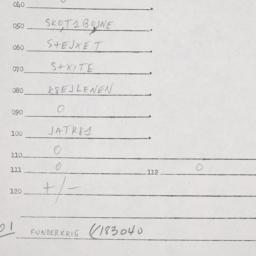 040
050 SKOT1BOJNE.
060 STEJKET.
070 STXITE.
080
090 0.
100 JATRK1.
110 0
111 0 112 0
120 +/-
01 FUNDERKRIG 183040